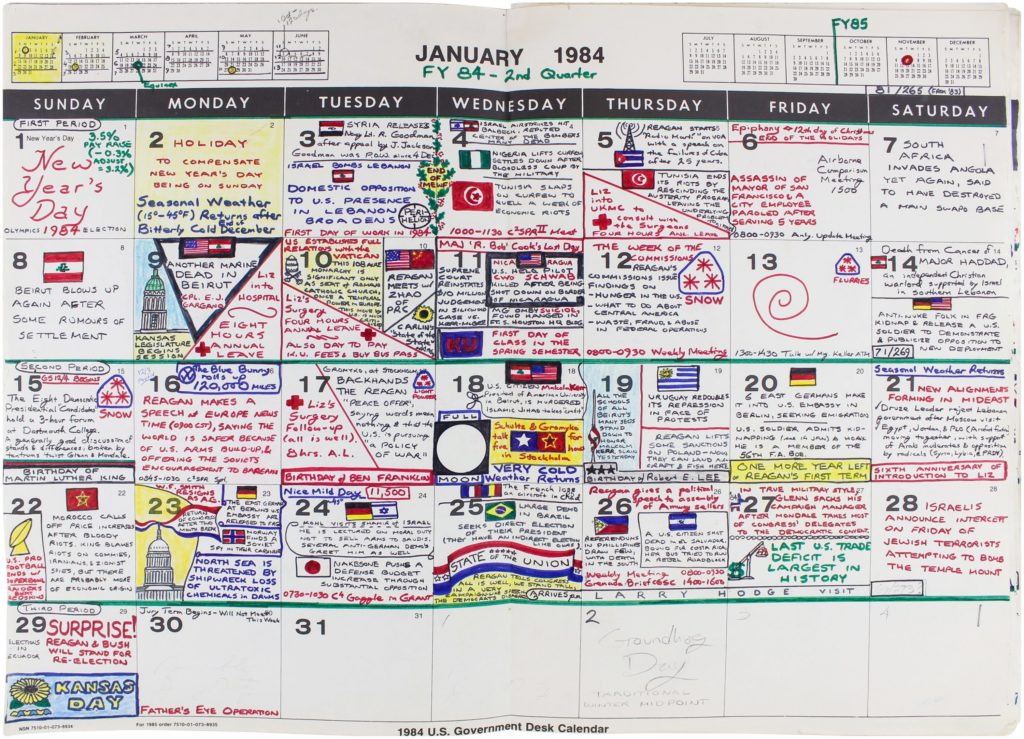 JANUARY 1984
FY 84 - 2nd Quarter
FY85
JANUARY
FEBRUARY
MARCH
APRIL
MAY
JUNE
JULY
AUGUST
SEPTEMBER
OCTOBER
NOVEMBER
DECEMBER
Equinox
81/265 (FROM '83)
SUNDAY
MONDAY
TUESDAY
WEDNESDAY
THURSDAY
FRIDAY
SATURDAY
(FIRST PERIOD)
1 New Year's Day
3.5%
PAY
RAISE
New
Year's
Day
OLYMPICS 1984 ELECTION
2
HOLIDAY
TO COMPENSATE
NEW YEAR'S DAY
BEING ON SUNDAY
Seasonal Weather
(15°-45°F) Returns after
Bitterly Cold December
3
SYRIA RELEASES
Navy Lt. R. Goodman
after appeal by J. Jackson
Goodman was P.O.W. since 4 Dec
ISRAEL BOMBS LEBANON
DOMESTIC OPPOSITION
TO U.S. PRESENCE
IN LEBANON
BROADENS
PERIHELION
FIRST DAY OF WORK IN 1984
4
ISRAEL AIRSTRIKES HIT
BALBECH, REPUTED
CENTER OF THE BOMBERS
MANY DEAD
NIGERIA LIFTS CURFEW
SETTLES DOWN AFTER
GOODNESS' COUP BY
THE MILITARY
TUNISIA SLAPS
ON CURFEW TO
QUELL WEEK OF
ECONOMIC RIOTS
1000-1130 C²SPR II Meet
5
REAGAN STARTS
"Radio Marti" on VOA
with a speech on
the failures of Cuba
after 25 years.
TUNISIA ENDS
ITS RIOTS BY
RESCINDING THE
AUSTERITY PROGRAM
LEAVING THE
UNDERLYING
Liz
into
UKMC to
consult with
the Surgeons
FOUR HOURS ANL. LEAVE
6
Epiphany - 12th day of Christmas
END OF THE HOLIDAYS
Airborne
Comparison
Meeting
1500
ASSASSIN OF
MAYOR OF SAN
FRANCISCO & A
CITY EMPLOYEE
PAROLED AFTER
SERVING 5 YEARS
0800-0930 Anly. Update Meeting
7
SOUTH
AFRICA
INVADES ANGOLA
YET AGAIN, SAID
TO HAVE DESTROYED
A MAIN SWAPO BASE
8
BEIRUT BLOWS UP
AGAIN AFTER
SOME RUMOURS OF
SETTLEMENT
9
ANOTHER MARINE
DEAD IN
BEIRUT
CPL. E.J.
GARGANO
Liz
into
HOSPITAL
EIGHT
HOURS
ANNUAL
LEAVE
KANSAS
LEGISLATURE
BEGINS
SESSION
10
U.S. ESTABLISHES FULL
RELATIONS with the
VATICAN
THIS 108 ACRE
MONARCHY IS
SIGNIFICANT ONLY
AS SEAT OF ROMAN
CATHOLIC CHURCH
REAGAN
MEETS w/
ZHAO OF
PRC
Liz's
Surgery
FOUR HOURS
ANNUAL LEAVE
CARLIN'S
State of the
State
ALSO DAY TO DAY
K.U. FEES & BUY BUS PASS
11
MAJ 'R. Bob' Cook's Last Day
SUPREME
COURT
REINSTATES
$10 MILLION
JUDGEMENT
IN SILKWOOD
CASE vs.
KERR-McGEE
NICARAGUA
U.S. HELO PILOT
CWO SCHWAB
KILLED AFTER BEING
SHOT DOWN ON BORDER
OF NICARAGUA
MG OMBY SUICIDE,
FOUND HANGED IN
FT. S. HOUSTON HQ BLDG
KU
FIRST DAY OF
CLASS IN THE
SPRING SEMESTER
12
THE WEEK OF THE
COMMISSIONS
REAGAN'S
COMMISSIONS ISSUE
FINDINGS ON
- HUNGER IN THE U.S.
- WHAT TO DO ABOUT
CENTRAL AMERICA
- WASTE, FRAUD, & ABUSE
IN FEDERAL OPERATIONS
MAJOR
SNOW
0800-0930 Weekly Meeting
13
FLURRIES
1300-1430 Talk w/ Mg. Keller ATM
14
Death from Cancer of
MAJOR HADDAD,
an independent Christian
warlord supported by Israel
in Southern Lebanon
ANTI-NUKE FOLK IN FRG
KIDNAP & RELEASE A U.S.
SOLDIER TO DEMONSTRATE
& PUBLICIZE OPPOSITION TO
NEW DEPLOYMENT
71/269
(SECOND PERIOD)
15
GS 12/4 BEGINS
The Eight Democratic
Presidential Candidates
hold a 3-hour forum
at Dartmouth College.
A generally good discussion of
stands & differences, broken by
tantrum 'tween Glenn & Mondale.
SNOW
BIRTHDAY OF
MARTIN LUTHER KING
16
The Blue Bunny
rolls up
120,000 MILES
REAGAN MAKES A
SPEECH at EUROPE NEWS
TIME (0900 CST), SAYING THE
WORLD IS SAFER BECAUSE
OF U.S. ARMS BUILD-UP, &
OFFERING THE SOVIETS
ENCOURAGEMENT TO BARGAIN
0845-1030 C²SPR Spl.
17
GROMYKO, at STOCKHOLM
BACKHANDS
THE REAGAN
"PEACE OFFER",
Saying words mean
nothing & that the
U.S. IS pursuing
"a policy
of WAR"
LIGHT
POWDER
Liz's
Surgery
Follow-up
(all is well)
8hrs. A.L.
BIRTHDAY OF BEN FRANKLIN
18
U.S. CITIZEN Malcolm Kerr
President of American University
in Beirut, is MURDERED
(ISLAMIC JIHAD takes 'credit')
FULL
MOON
Schultz & Gromyko
talk for
five hours
in Stockholm
VERY COLD
Weather Returns
The French lose
an aircraft in Chad
19
ALL THE
SCHOOLS
OF ALL
BEIRUT'S
MANY SECS
STAND
DOWN TO
HONOR
MALCOLM
KERR, SLAIN
YESTERDAY
URUGUAY REDOUBLES
ITS REPRESSION
IN FACE OF
PROTESTS
REAGAN LIFTS
SOME SANCTIONS
ON POLAND - NOW
THEY CAN LAND AIR-
CRAFT & FISH HERE
BIRTHDAY of ROBERT E. LEE
20
6 EAST GERMANS MAKE
IT INTO U.S. EMBASSY IN
BERLIN, SEEKING EMIGRATION
U.S. SOLDIER ADMITS KID-
NAPPING (see 14 JAN) A HOAX
HE IS A MEMBER OF THE
56TH F.A. BDE.
ONE MORE YEAR LEFT
OF REAGAN'S FIRST TERM
21
Seasonal Weather Returns
NEW ALIGNMENTS
FORMING IN MIDEAST
Druze Leader reject Lebanon
government after Moscow visit
Egypt, Jordan, & PLO (Arafat Faction)
moving together, with support
of Arab moderates & opposition
by radicals (Syria, Lybia, & PFDR)
SIXTH ANNIVERSARY OF
INDUCTION
22
MOROCCO CALLS
OFF PRICE INCREASES
AFTER BLOODY
RIOTS, KING BLAMES
RIOTS ON COMMIES,
IRANIANS, & ZIONIST
SPIES, BUT THERE
ARE PROBABLY MORE
OF ECONOMIC ORIGIN
U.S. PRO
FOOTBALL
ENDS IN
SUPERBOWL
RAIDERS
BEAT
REDSKINS
23
W.F. SMITH
RESIGNS
AS A.G.
RETURN OF
CONGRESS
AFTER TWO
MONTH BREAK
THE EAST GERMANS
AT BERLIN'S U.S.
EMBASSY ARE
RELEASED TO FRG
NORWAY
FINDS A
SOVIET
SPY IN THEIR CABINET
NORTH SEA IS
THREATENED BY
SHIPWRECK LOSS OF
ULTRATOXIC
CHEMICALS IN DRUMS
24
Nice Mild Day
11,500
KOHL VISITS SHAMIR OF ISRAEL
HE IS LECTURED ON MORAL DUTY
NOT TO SELL ARMS TO SAUDIS,
SEVERAL ANTI-GERMAN DEMO'S
GREET HIM AS WELL
NAKASONE PUSHES A
DEFENSE BUDGET
INCREASE THROUGH
SUBSTANTIAL
OPPOSITION
0730-1030 C4 Gaggle in GRANT
25
LARGE DEMO
IN BRAZIL
SEEKS DIRECT ELECTION
OF THEIR PRESIDENT
(THEY HAVE AN INDIRECT ELECTION)
STATE OF THE UNION
REAGAN TELLS CONGRESS
ALL IS WELL, WE STAND TALL
IN A VERY
CAMPAIGN-LIKE SPEECH
THE DEMOCRATS DISPUTE
ARRIVES P.M.
26
Reagan gives a political
speech to assembly
of Amway sellers
REFERENDUMS
IN PHILIPPINES
BRAN FEW
DEATHS
IN THE SOUTH
AN U.S. CITIZEN SHOT
DEAD IN EL SALVADOR,
GOING FOR COSTA RICA,
HER BUS TRIED TO RUN
A REBEL ROADBLOCK
Weekly Meeting 0800-0930
Grenada Brief CGSC 1400-1600
LARRY HODGE VISIT
27
IN TRUE MILITARY STYLE,
GLENN SACKS HIS
CAMPAIGN MANAGER
AFTER MONDALE TAKES MOST
OF CONGRESS' DELEGATES
TO THE DEMOCRATIC CONVENT.
LAST U.S. TRADE
DEFICIT IS
LARGEST IN
HISTORY
28
ISRAELIS
ANNOUNCE INTERCEPT
ON FRIDAY OF
JEWISH TERRORISTS
ATTEMPTING TO BOMB
THE TEMPLE MOUNT
(THIRD PERIOD)
29
SURPRISE!
REAGAN & BUSH
WILL STAND FOR
RE-ELECTION
ELECTIONS
IN
ECUADOR
KANSAS
DAY
30
Jury Term Begins - Will Not Meet
This Week
FATHER'S EYE OPERATION
31
1
2
Groundhog
Day
TRADITIONAL
WINTER MIDPOINT
3
4
NSN 7510-01-073-8934
For 1985 order 7510-01-073-8935
1984 U.S. Government Desk Calendar